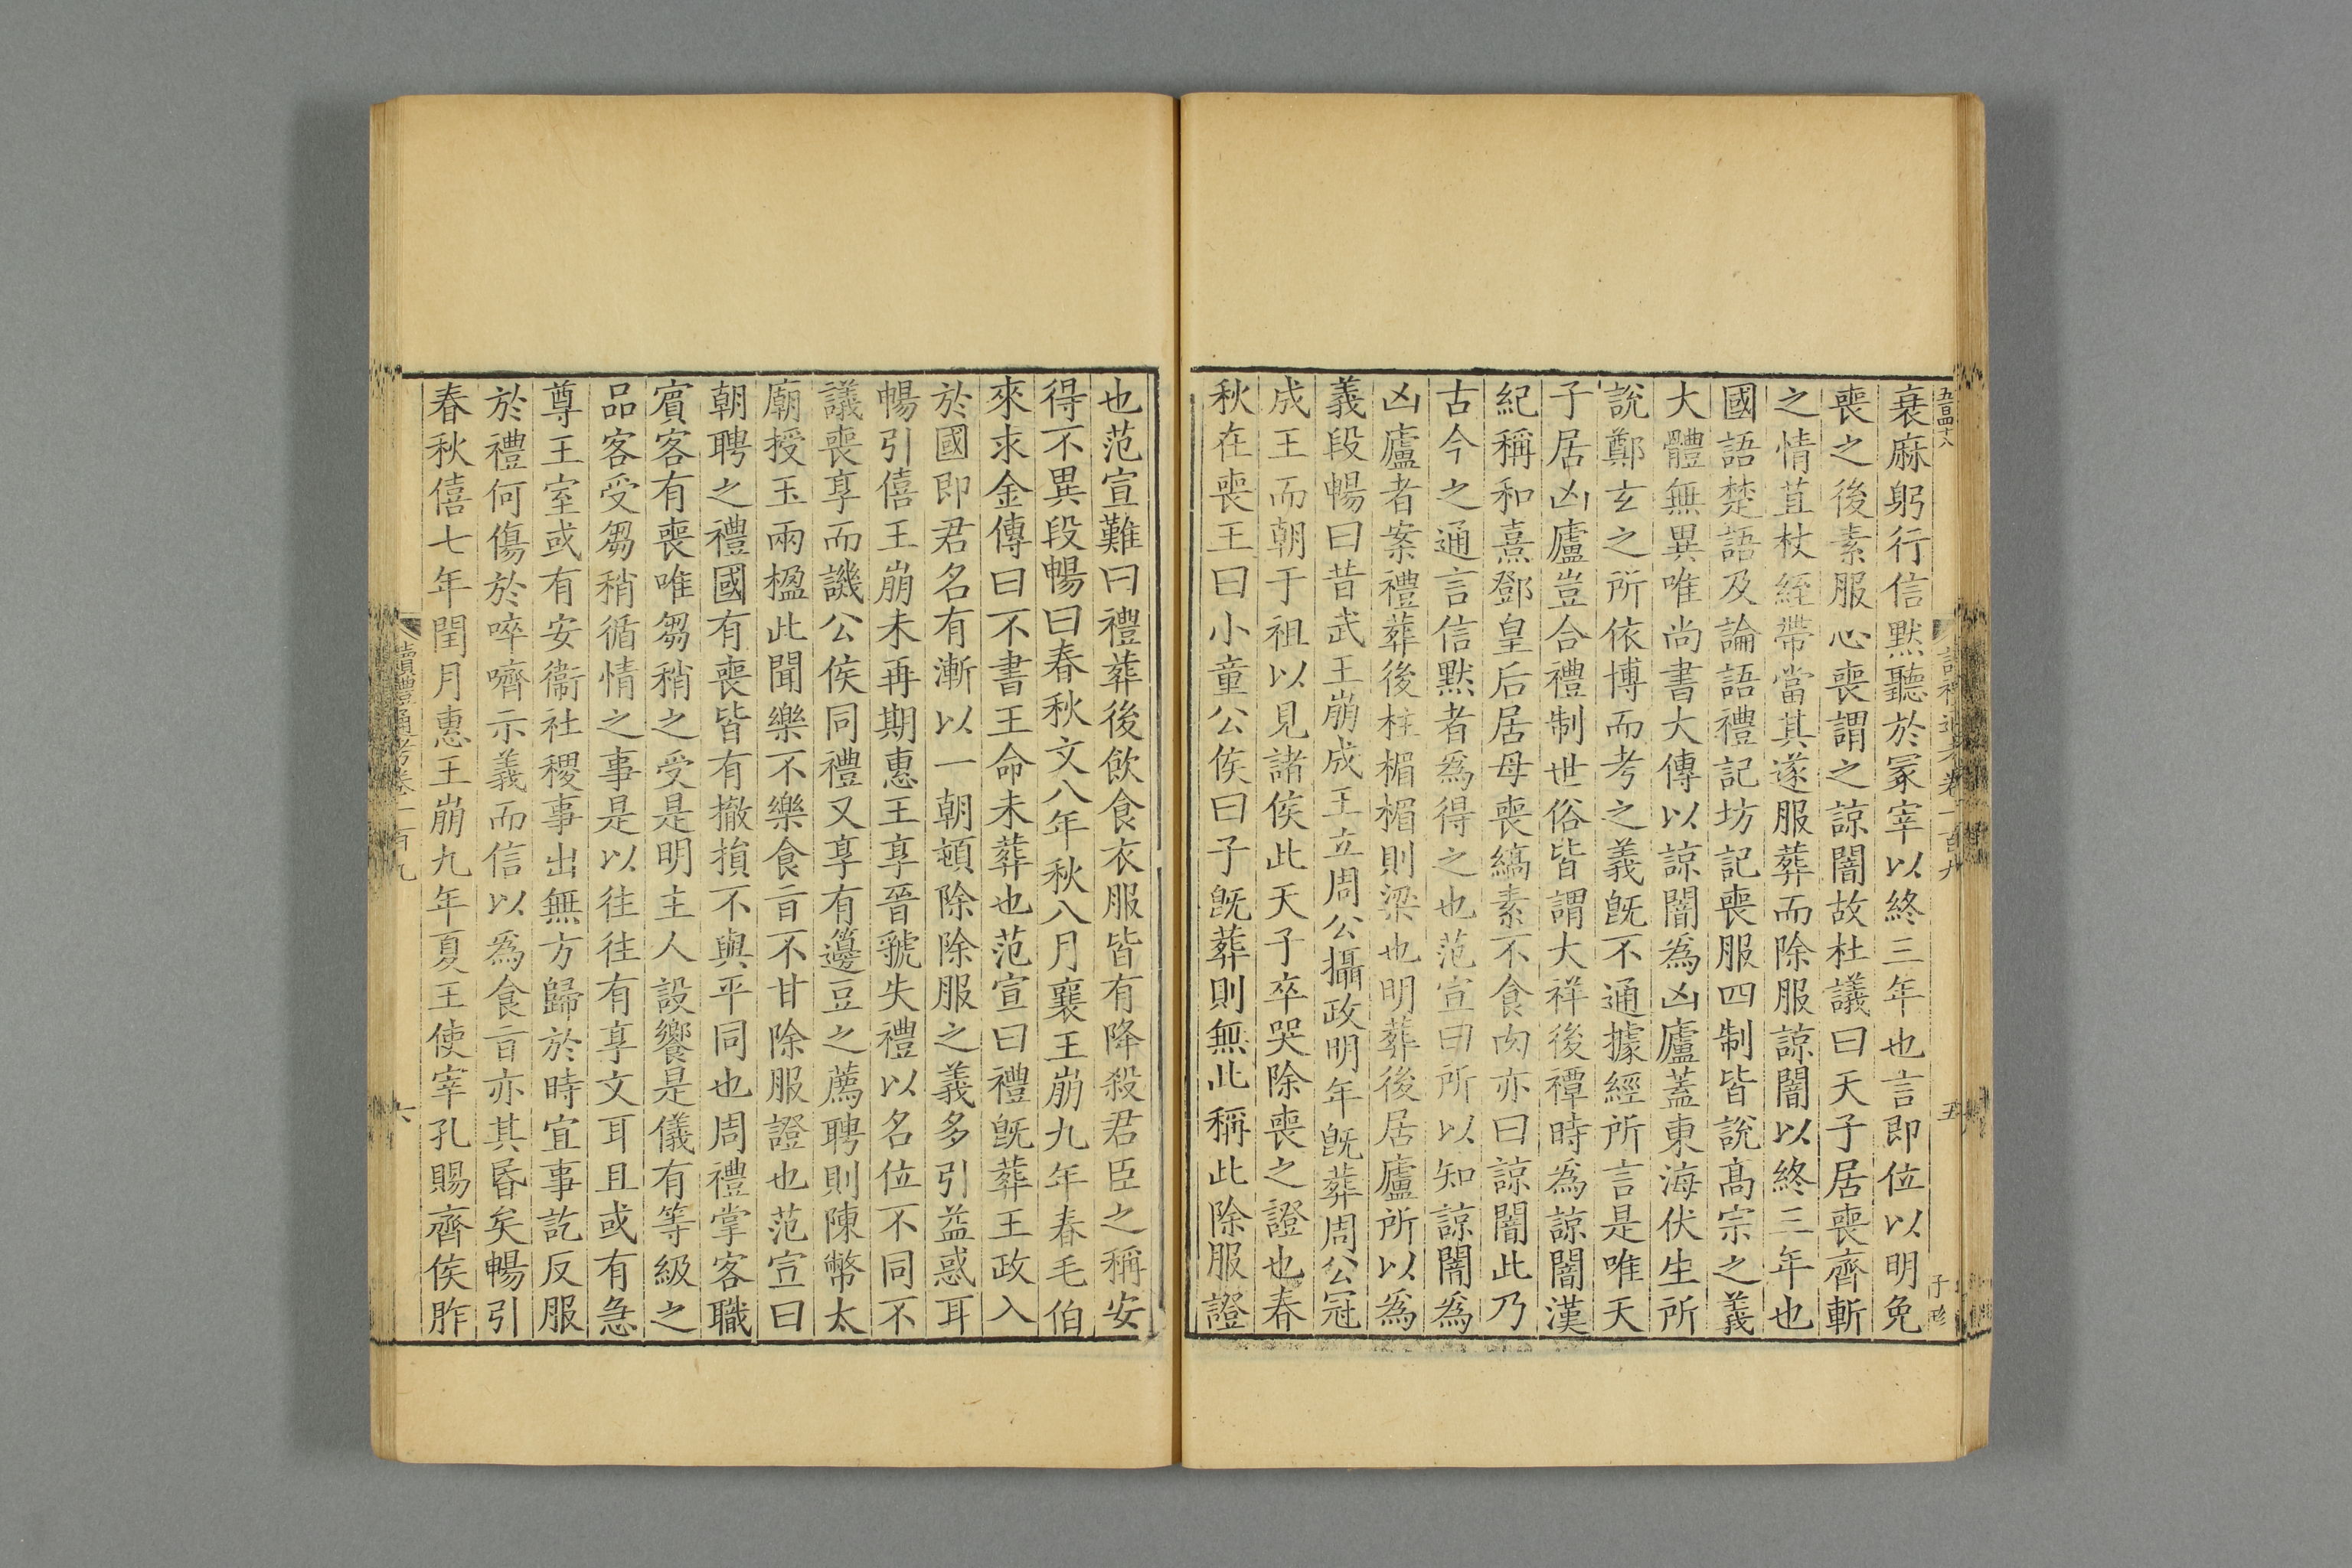 五百四十八
衰麻躬行信黙聽於冡宰以終三年也言即位以明免
喪之後素服心喪謂之諒闇故杜議曰天子居喪齊斬
之情苴杖絰帶當其遂服葬而除服諒闇以終三年也
國語楚語及論語禮記坊記喪服四制皆說髙宗之義
大體無異唯尚書大傳以諒闇爲凶廬蓋東海伏生所
說鄭玄之所依博而考之義旣不通據經所言是唯天
子居凶廬豈合禮制世俗皆謂大祥後禫時爲諒闇漢
紀稱和熹鄧皇后居母喪縞素不食肉亦曰諒闇此乃
古今之通言信黙者爲得之也范宣曰所以知諒闇爲
凶廬者案禮葬後柱楣楣則梁也明葬後居廬所以爲
義段暢曰昔武王崩成王立周公攝政明年旣葬周公冠
成王而朝于祖以見諸侯此天子卒哭除喪之證也春
秋在喪王曰小童公侯曰子旣葬則無此稱此除服證
也范宣難曰禮葬後飲食衣服皆有降殺君臣之稱安
得不異段暢曰春秋文八年秋八月襄王崩九年春毛伯
來求金傳曰不書王命未葬也范宣曰禮旣葬王政入
於國即君名有漸以一朝頓除除服之義多引益惑耳
暢引僖王崩未再期惠王享晉虢失禮以名位不同不
議喪享而譏公侯同禮又享有籩豆之薦聘則陳幣太
廟授玉兩楹此聞樂不樂食旨不甘除服證也范宣曰
朝聘之禮國有喪皆有撤損不與平同也周禮掌客職
賓客有喪唯芻稍之受是明主人設饗是儀有等級之
品客受芻稍循情之事是以往往有享文耳且或有急
尊王室或有安衞社稷事出無方歸於時宜事訖反服
於禮何傷於啐嚌示義而信以爲食旨亦其昬矣暢引
春秋僖七年閏月惠王崩九年夏王使宰孔賜齊侯胙
讀禮通考卷一百九
六